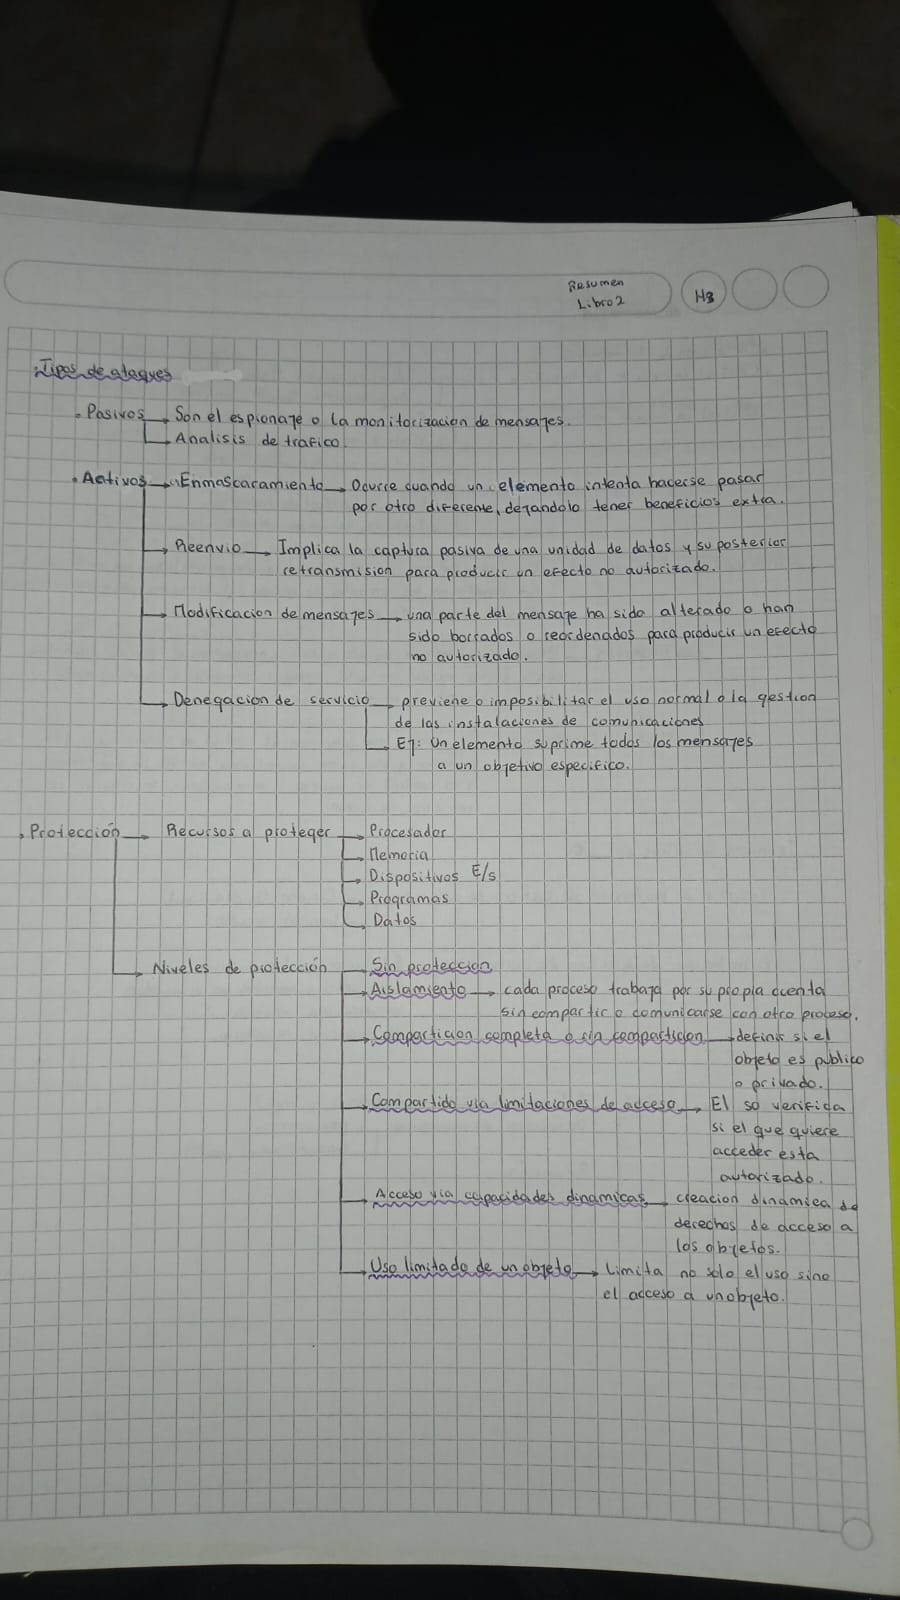 Resumen
Libro 2
H3
Tipos de ataques
Pasivos → Son el espionaje o la monitorizacion de mensajes.
→ Analisis de trafico.
Activos → Enmascaramiento → Ocurre cuando un elemento intenta hacerse pasar
por otro diferente, dejandolo tener beneficios extra.
→ Reenvio → Implica la captura pasiva de una unidad de datos y su posterior
retransmision para producir un efecto no autorizado.
→ Modificacion de mensajes → una parte del mensaje ha sido alterado o han
sido borrados o reordenados para producir un efecto
no autorizado.
→ Denegacion de servicio → previene o imposibilitar el uso normal o la gestion
de las instalaciones de comunicaciones
→ Ej: Un elemento suprime todos los mensajes
a un objetivo especifico.
Protección → Recursos a proteger → Procesador
→ Memoria
→ Dispositivos E/s
→ Programas
→ Datos
→ Niveles de protección → Sin proteccion
→ Aislamiento → cada proceso trabaja por su propia cuenta
sin compartir o comunicarse con otro proceso.
→ Comparticion completa o sin comparticion → definir si el
objeto es publico
o privado.
→ Compartido via limitaciones de acceso → El so verifica
si el que quiere
acceder esta
autorizado.
→ Acceso via capacidades dinamicas → creacion dinamica de
derechos de acceso a
los objetos.
→ Uso limitado de un objeto → Limita no solo el uso sino
el acceso a un objeto.